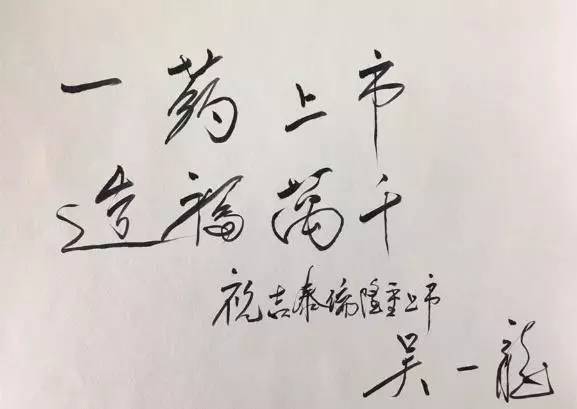 一药上市
造福萬千
祝吉泰瑞隆重上市
吴一龍